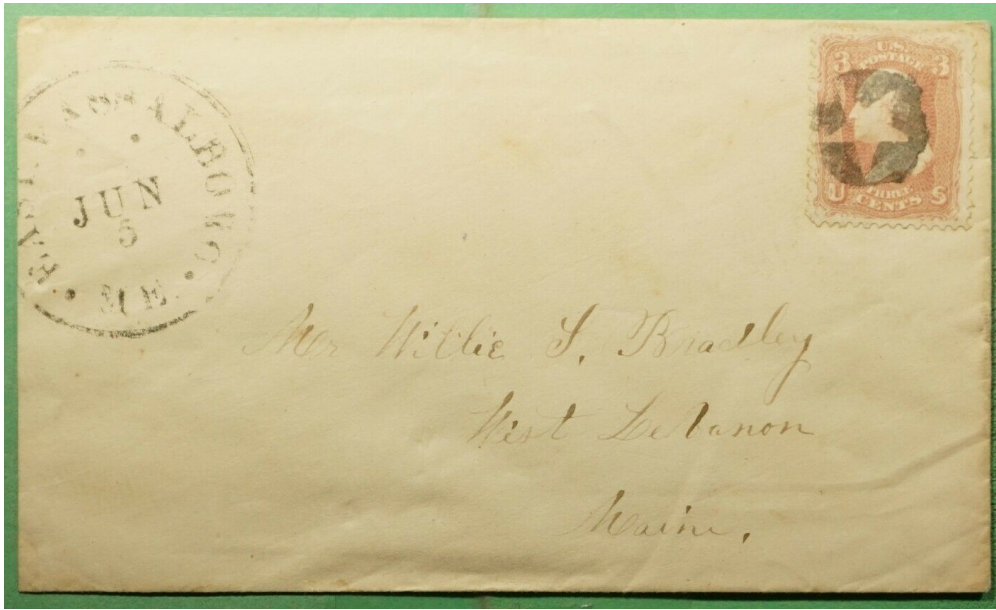 EAST VASSALBORO
JUN
5
ME
3 U.S. 3
POSTAGE
THREE
U CENTS S
Mr Willie S. Bradley
West Lebanon
Maine.